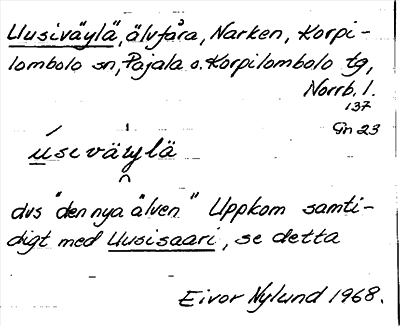 Uusiväylä, älvfåra, Narken, Korpi-
lombolo sn, Pajala o. Korpilombolo tg,
Norrb. l.
137
Gn 23
ùseväylä
dvs "den nya älven" Uppkom samti-
digt med Uusisaari, se detta
Eivor Nylund 1968.